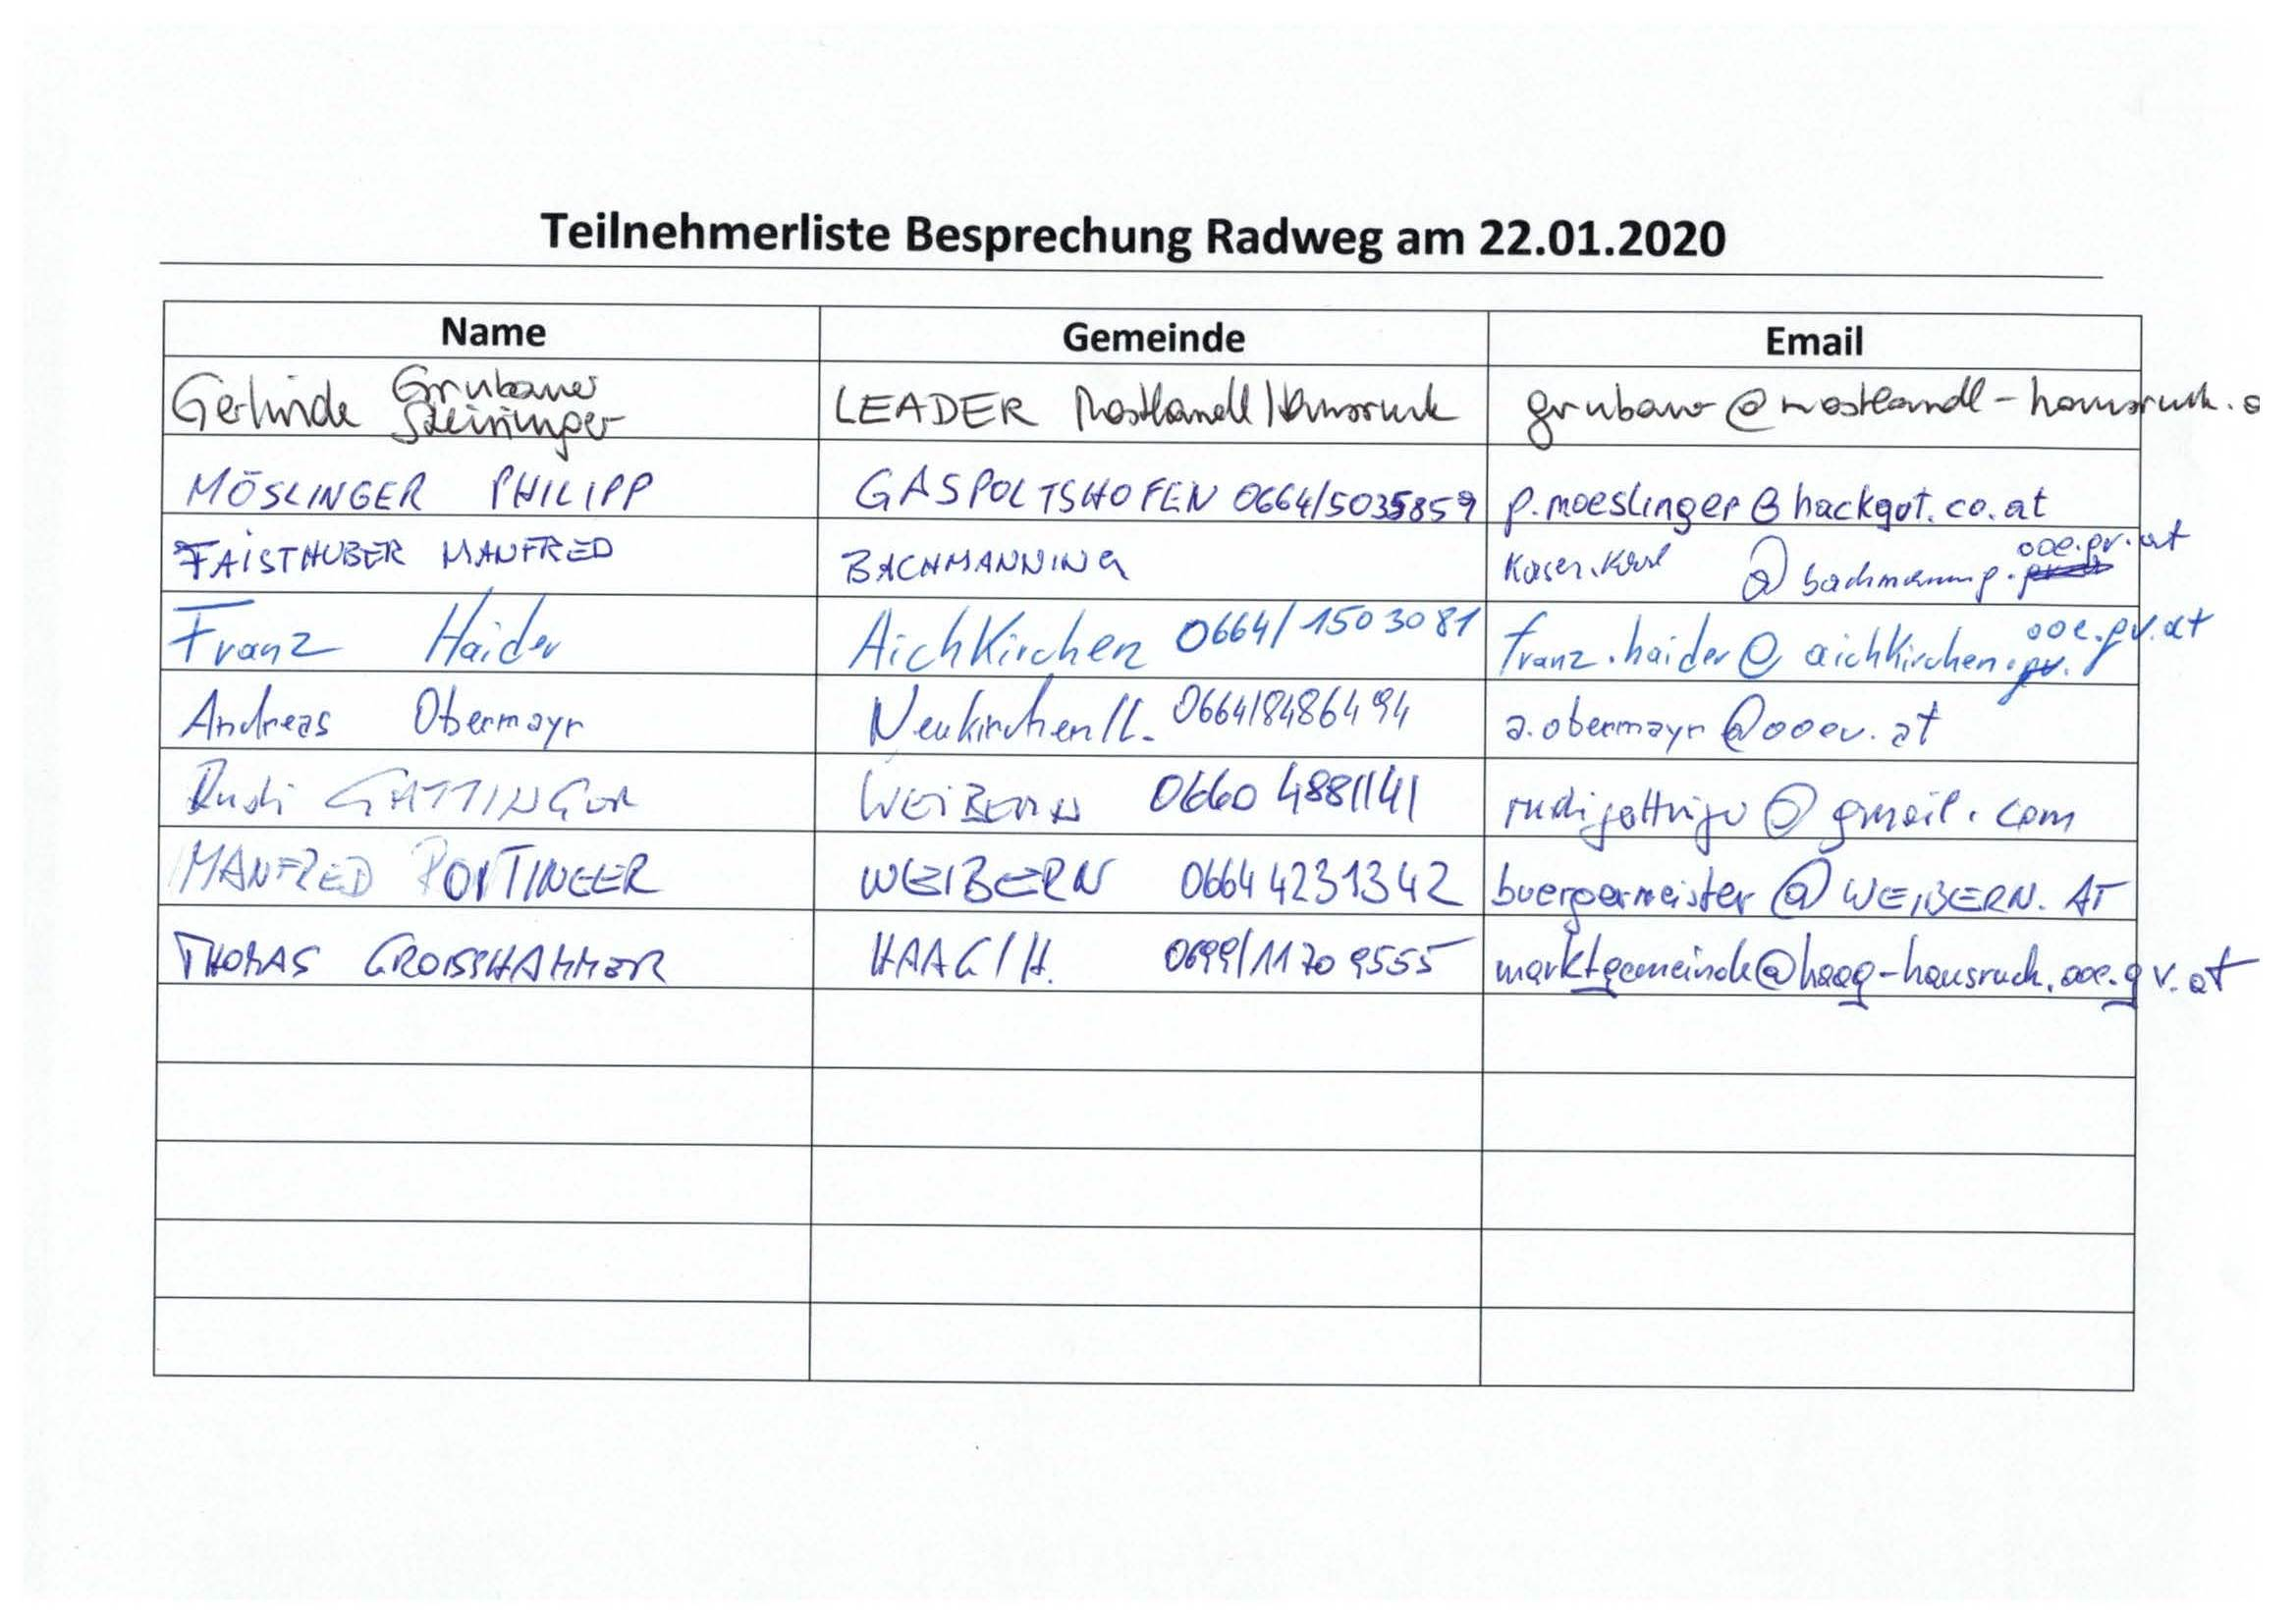 Teilnehmerliste Besprechung Radweg am 22.01.2020
Name Gemeinde Email
Gerlinde Grubauer Steininger LEADER Mostlandl/Hausruck grubauer@mostlandl-hausruck.a
MÖSLINGER PHILIPP GASPOLTSHOFEN 0664/5035859 p.moeslinger@hackgut.co.at
FAISTHUBER MANFRED BACHMANNING kaser.karl @bachmanning.ooe.gv.at
Franz Haider Aichkirchen 0664/1503081 franz.haider@aichkirchen.ooe.gv.at
Andreas Obermayr Neukirchen/L. 0664/8486494 a.obermayr@ooev.at
Rudi GATTINGER WEIBERN 0660 4881141 rudigattinger@gmail.com
MANFRED ROITINGER WEIBERN 0664 4231342 buergermeister@WEIBERN.AT
THOMAS GROISSHAMMER HAAG/H. 0699/11709555 marktgemeinde@haag-hausruck.ooe.gv.at